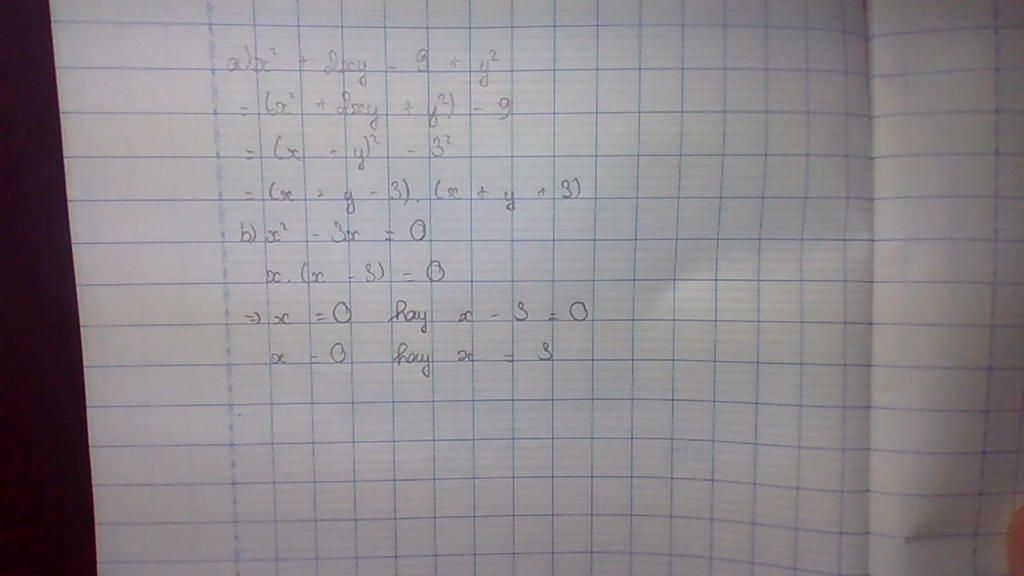 a) x² + 2xy - 9 + y²
= (x² + 2xy + y²) - 9
= (x + y)² - 3²
= (x + y - 3).(x + y + 3)
b) x² - 3x = 0
x.(x - 3) = 0
=> x = 0 hay x - 3 = 0
x = 0 hay x = 3